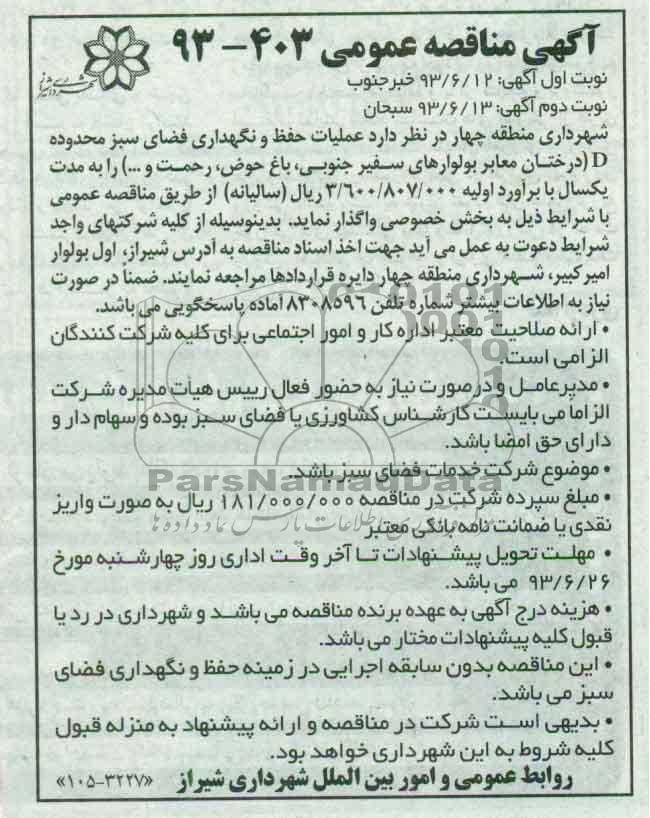 آگهی مناقصه عمومی ۴۰۳ - ۹۳
نوبت اول آگهی: ۹۳/۶/۱۲ خبرجنوب
نوبت دوم آگهی: ۹۳/۶/۱۳ سبحان
شهرداری منطقه چهار در نظر دارد عملیات حفظ و نگهداری فضای سبز محدوده
D (درختان معابر بولوارهای سفیر جنوبی، باغ حوض، رحمت و ...) را به مدت
یکسال با برآورد اولیه ۳/۶۰۰/۸۰۷/۰۰۰ ریال (سالیانه) از طریق مناقصه عمومی
با شرایط ذیل به بخش خصوصی واگذار نماید. بدینوسیله از کلیه شرکتهای واجد
شرایط دعوت به عمل می آید جهت اخذ اسناد مناقصه به آدرس شیراز، اول بولوار
امیرکبیر، شهرداری منطقه چهار دایره قراردادها مراجعه نمایند. ضمنا در صورت
نیاز به اطلاعات بیشتر شماره تلفن ۸۳۰۸۵۹۶ آماده پاسخگویی می باشد.
• ارائه صلاحیت معتبر اداره کار و امور اجتماعی برای کلیه شرکت کنندگان
الزامی است.
• مدیرعامل و درصورت نیاز به حضور فعال رییس هیأت مدیره شرکت
الزاما می بایست کارشناس کشاورزی یا فضای سبز بوده و سهام دار و
دارای حق امضا باشد.
• موضوع شرکت خدمات فضای سبز باشد.
ParsNamadData
• مبلغ سپرده شرکت در مناقصه ۱۸۱/۰۰۰/۰۰۰ ریال به صورت واریز
نقدی یا ضمانت نامه بانکی معتبر
• مهلت تحویل پیشنهادات تا آخر وقت اداری روز چهارشنبه مورخ
۹۳/۶/۲۶ می باشد.
• هزینه درج آگهی به عهده برنده مناقصه می باشد و شهرداری در رد یا
قبول کلیه پیشنهادات مختار می باشد.
• این مناقصه بدون سابقه اجرایی در زمینه حفظ و نگهداری فضای
سبز می باشد.
• بدیهی است شرکت در مناقصه و ارائه پیشنهاد به منزله قبول
کلیه شروط به این شهرداری خواهد بود.
روابط عمومی و امور بین الملل شهرداری شیراز «۳۲۲۷-۱۰۵»